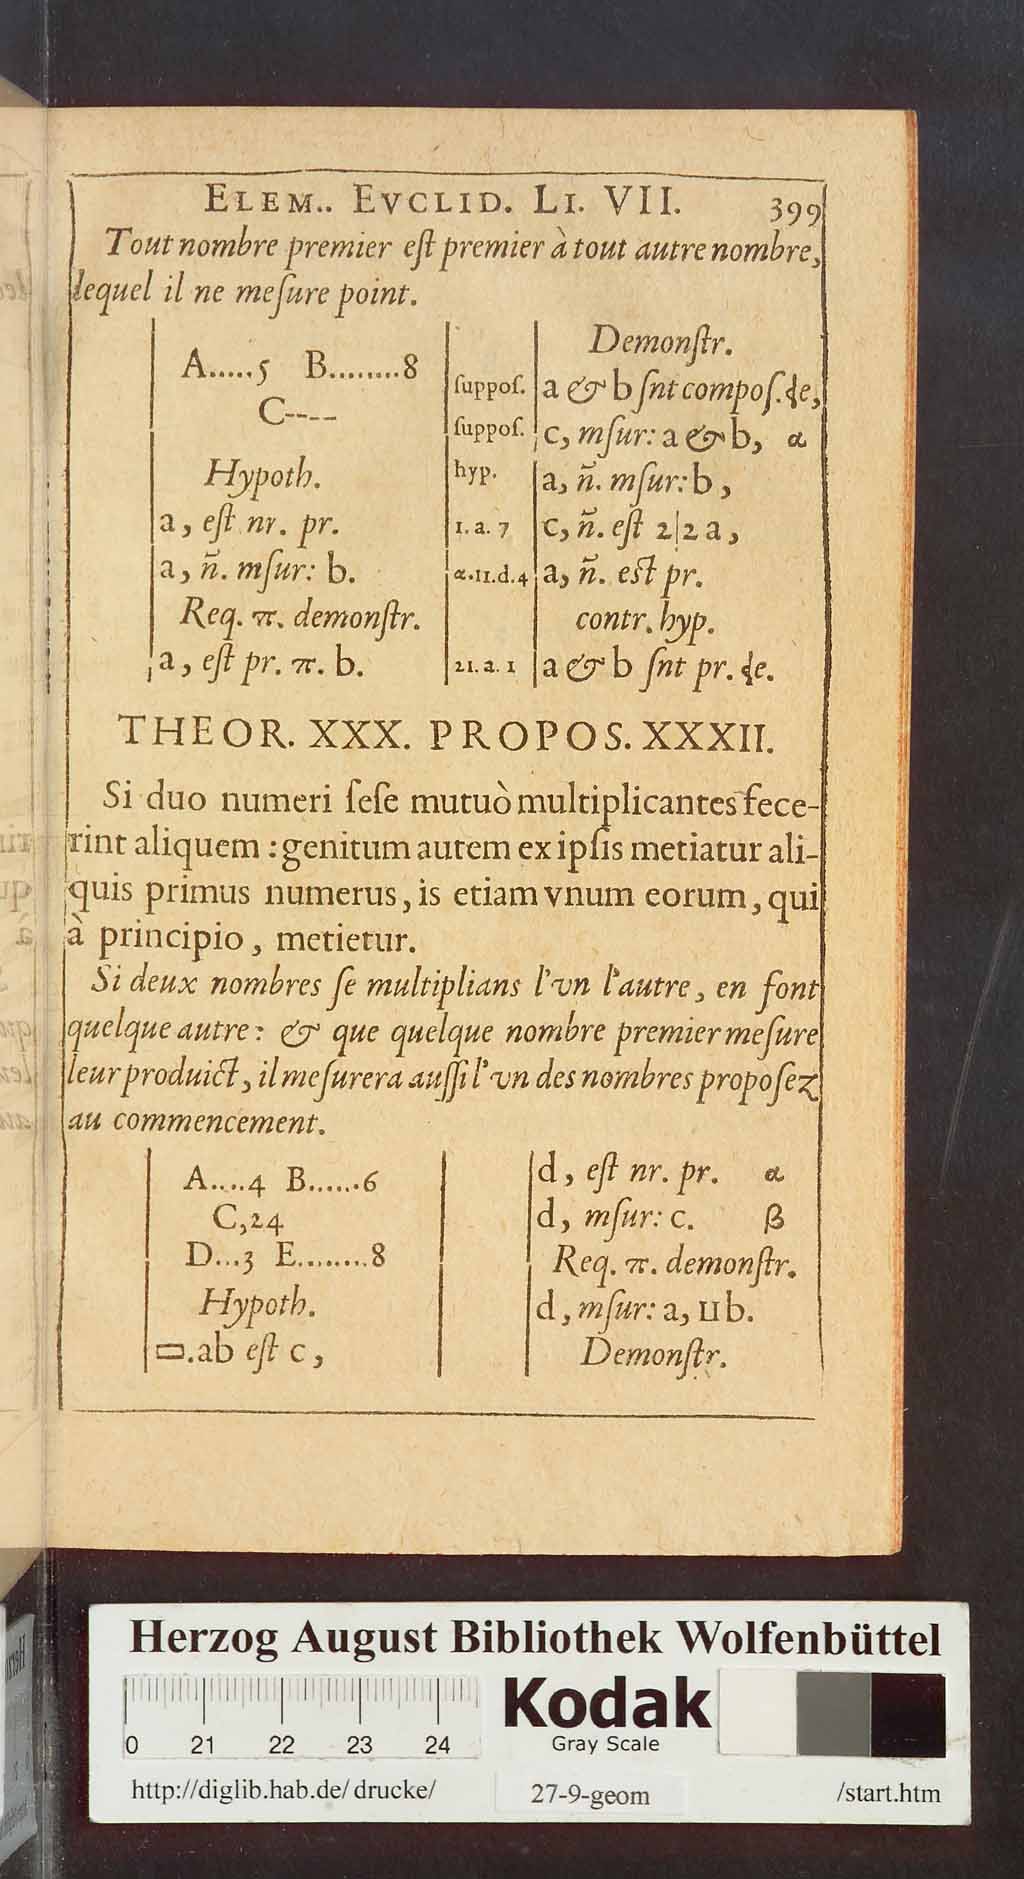 ELEM.. EVCLID. LI. VII. 399
Tout nombre premier eſt premier à tout autre nombre,
lequel il ne meſure point.
A.....5 B........8
C----
Hypoth.
a, eſt nr. pr.
a, ñ. mſur: b.
Req. π. demonſtr.
a, eſt pr. π. b.
Demonſtr.
ſuppoſ. a & b ſnt compoſ. ꝗe,
ſuppoſ. c, mſur: a & b, α
hyp. a, ñ. mſur: b,
1. a. 7 c, ñ. eſt 2|2 a,
α.11.d.4 a, ñ. eſt pr.
contr. hyp.
21. a. 1 a & b ſnt pr. ꝗe.
THEOR. XXX. PROPOS. XXXII.
Si duo numeri ſeſe mutuò multiplicantes fece-
rint aliquem : genitum autem ex ipſis metiatur ali-
quis primus numerus, is etiam vnum eorum, qui
à principio, metietur.
Si deux nombres ſe multiplians l'vn l'autre, en font
quelque autre: & que quelque nombre premier meſure
leur produict, il meſurera auſſi l'vn des nombres propoſez
au commencement.
A....4 B......6
C,24
D...3 E........8
Hypoth.
▭.ab eſt c,
d, eſt nr. pr. α
d, mſur: c. β
Req. π. demonſtr.
d, mſur: a, ıı b.
Demonſtr.
Herzog August Bibliothek Wolfenbüttel
0 21 22 23 24
Kodak
Gray Scale
http://diglib.hab.de/drucke/ 27-9-geom /start.htm